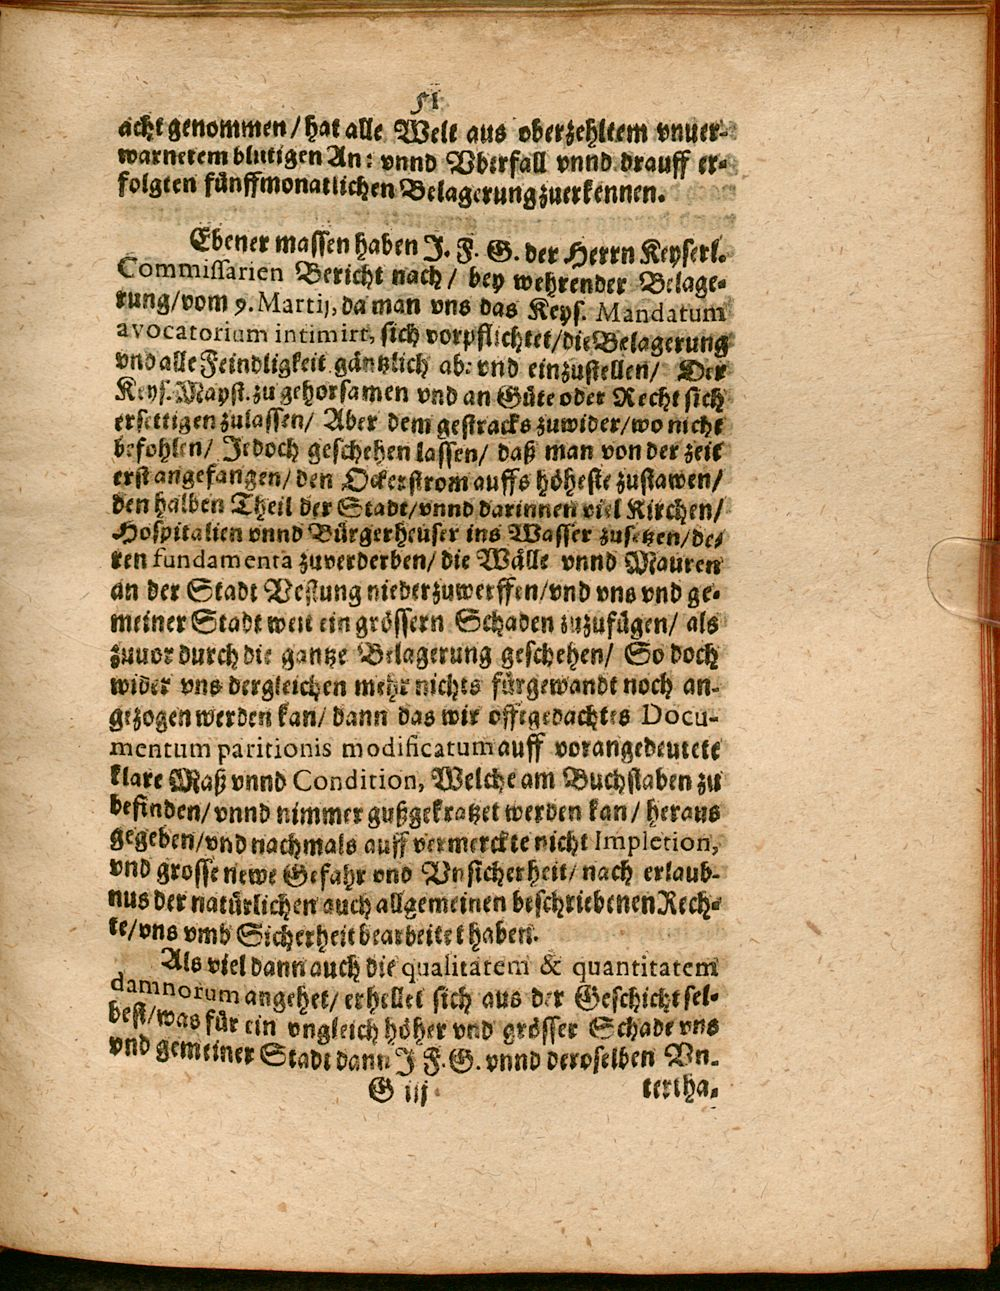 51
acht genommen / hat alle Welt aus oberzehltem vnuer-
warnetem blutigen An: vnnd Vberfall vnnd drauff er-
folgten fünffmonatlichen Belagerung zuerkennen.
Ebener massen haben J. F. G. der Herrn Keyserl.
Commissarien Bericht nach / bey wehrender Belage-
rung / vom 9. Martij, da man vns das Keys. Mandatum
avocatorium intimirt, sich vorpflichtet / die Belagerung
vnd alle Feindligkeit gäntzlich ab: vnd einzustellen / Der
Keys. Mayst. zu gehorsamen vnd an Güte oder Recht sich
ersettigen zulassen / Aber dem gestracks zuwider / wo nicht
befohlen / Jedoch geschehen lassen / daß man von der zeit
erst angefangen / den Ockerstrom auffs höheste zustawen /
den halben Theil der Stadt / vnnd darinnen viel Kirchen /
Hospitalien vnnd Bürgerheuser ins Wasser zusetzen / de-
ren fundamenta zuverderben / die Wälle vnnd Mauren
an der Stadt Vestung niederzuwerffen / vnd vns vnd ge-
meiner Stadt weit ein grössern Schaden zuzufügen / als
zuuor durch die gantze Belagerung geschehen / So doch
wider vns dergleichen mehr nichts fürgewandt noch an-
gezogen werden kan / dann das wir offtgedachtes Docu-
mentum paritionis modificatum auff vorangedeutete
klare Maß vnnd Condition, Welche am Buchstaben zu
befinden / vnnd nimmer außgekratzet werden kan / heraus
gegeben / vnd nachmals auff vermerckte nicht Impletion,
vnd grosse newe Gefahr vnd Vnsicherheit / nach erlaub-
nus der natürlichen auch allgemeinen beschriebenen Rech-
te / vns vmb Sicherheit bearbeitet haben.
Als viel dann auch die qualitatem & quantitatem
damnorum angehet / erhellet sich aus der Geschicht sel-
best / was für ein vngleich höher vnd grösser Schade vns
vnd gemeiner Stadt dann J F. G. vnnd deroselben Vn-
G iij
tertha-